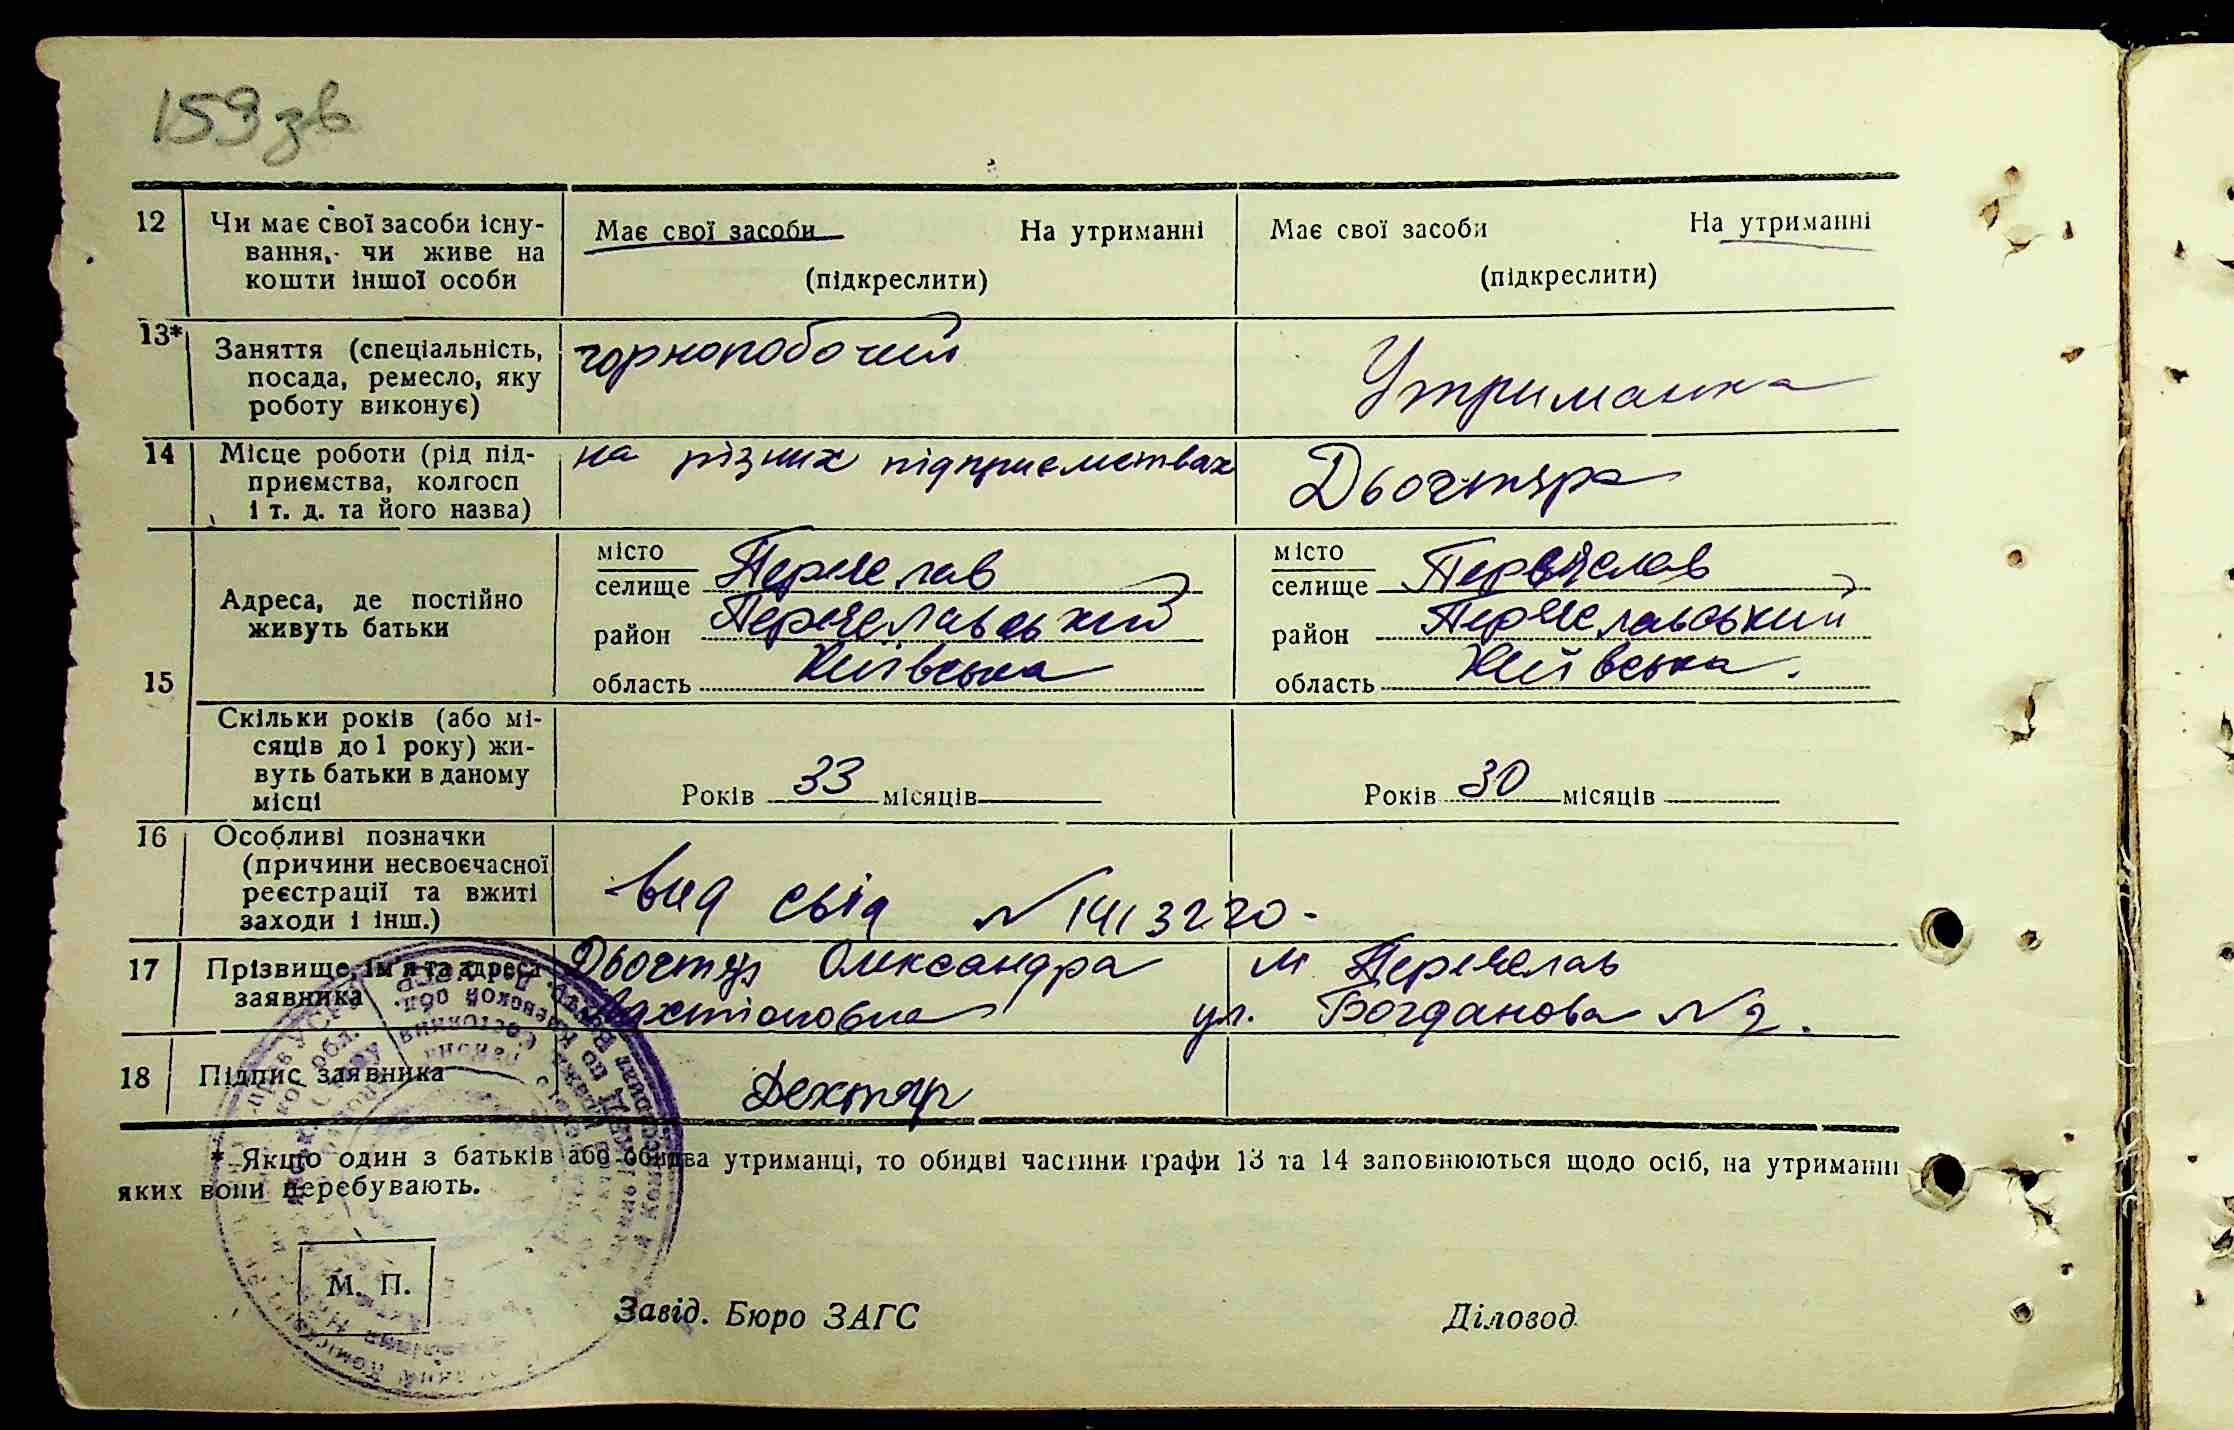 159 зв
12 Чи має свої засоби існу-
вання, чи живе на
кошти іншої особи
Має свої засоби На утриманні
(підкреслити)
Має свої засоби На утриманні
(підкреслити)
13* Заняття (спеціальність,
посада, ремесло, яку
роботу виконує)
чорноробочий
Утриманка
14 Місце роботи (рід під-
приємства, колгосп
і т. д. та його назва)
на різних підприємствах
Дьогтяра
15 Адреса, де постійно
живуть батьки
місто
селище Переяслав
район Переяславський
область Київська
місто
селище Переяслав
район Переяславський
область Київська.
Скільки років (або мі-
сяців до 1 року) жи-
вуть батьки в даному
місці
Років 33 місяців
Років 30 місяців
16 Особливі позначки
(причини несвоєчасної
реєстрації та вжиті
заходи і інш.)
вид свід № 1413220-
17 Прізвище, ім'я та адреса
заявника
Дьогтяр Олександра м Переяслав
ул. Богданова № 2.
18 Підпис заявника
Дехтяр
* Якщо один з батьків або обидва утриманці, то обидві частини графи 13 та 14 заповнюються щодо осіб, на утриманні
яких вони перебувають.
М. П.
Завід. Бюро ЗАГС Діловод